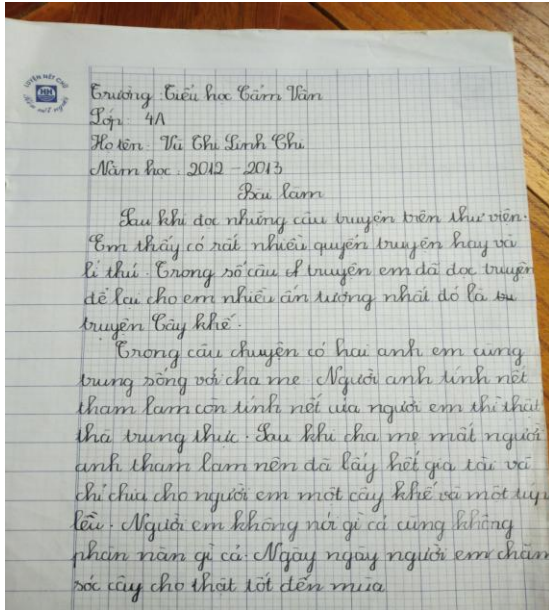 LUYỆN NÉT CHỮ
HH
Rèn nết người
Trường: Tiểu học Cẩm Vân
Lớp: 4A
Họ tên: Vũ Thị Linh Chi
Năm học: 2012 - 2013
Bài làm
Sau khi đọc những câu truyện trên thư viện.
Em thấy có rất nhiều quyển truyện hay và
lí thú. Trong số câu truyện em đã đọc truyện
để lại cho em nhiều ấn tượng nhất đó là
truyện Cây khế.
Trong câu chuyện có hai anh em cùng
trung sống với cha mẹ. Người anh tính nết
tham lam còn tính nết của người em thì thật
thà trung thực. Sau khi cha mẹ mất người
anh tham lam nên đã lấy hết gia tài và
chỉ chia cho người em một cây khế và một túp
lều. Người em không nói gì cả cũng không
phàn nàn gì cả. Ngày ngày người em chăm
sóc cây cho thật tốt đến mùa